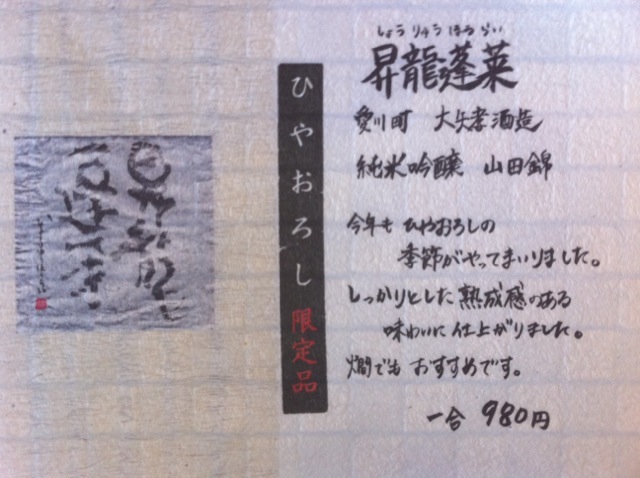 しょうりゅうほうらい
昇龍蓬莱
愛川町 大矢孝酒造
純米吟醸 山田錦
今年も ひやおろしの
季節がやってまいりました。
しっかりとした熟成感のある
味わいに仕上がりました。
燗でも おすすめです。
一合 980円
ひやおろし 限定品